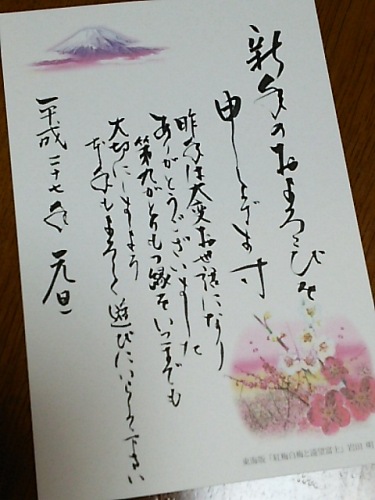 新年のおよろこびを
申し上げます
昨年は大変お世話になり
ありがとうございました
第九がとりもつ縁をいつまでも
大切にしましょう
本年もまろまろと遊びにいらして下さい
平成二十七年 元旦
東海版「紅梅白梅と遠望富士」岩田 明